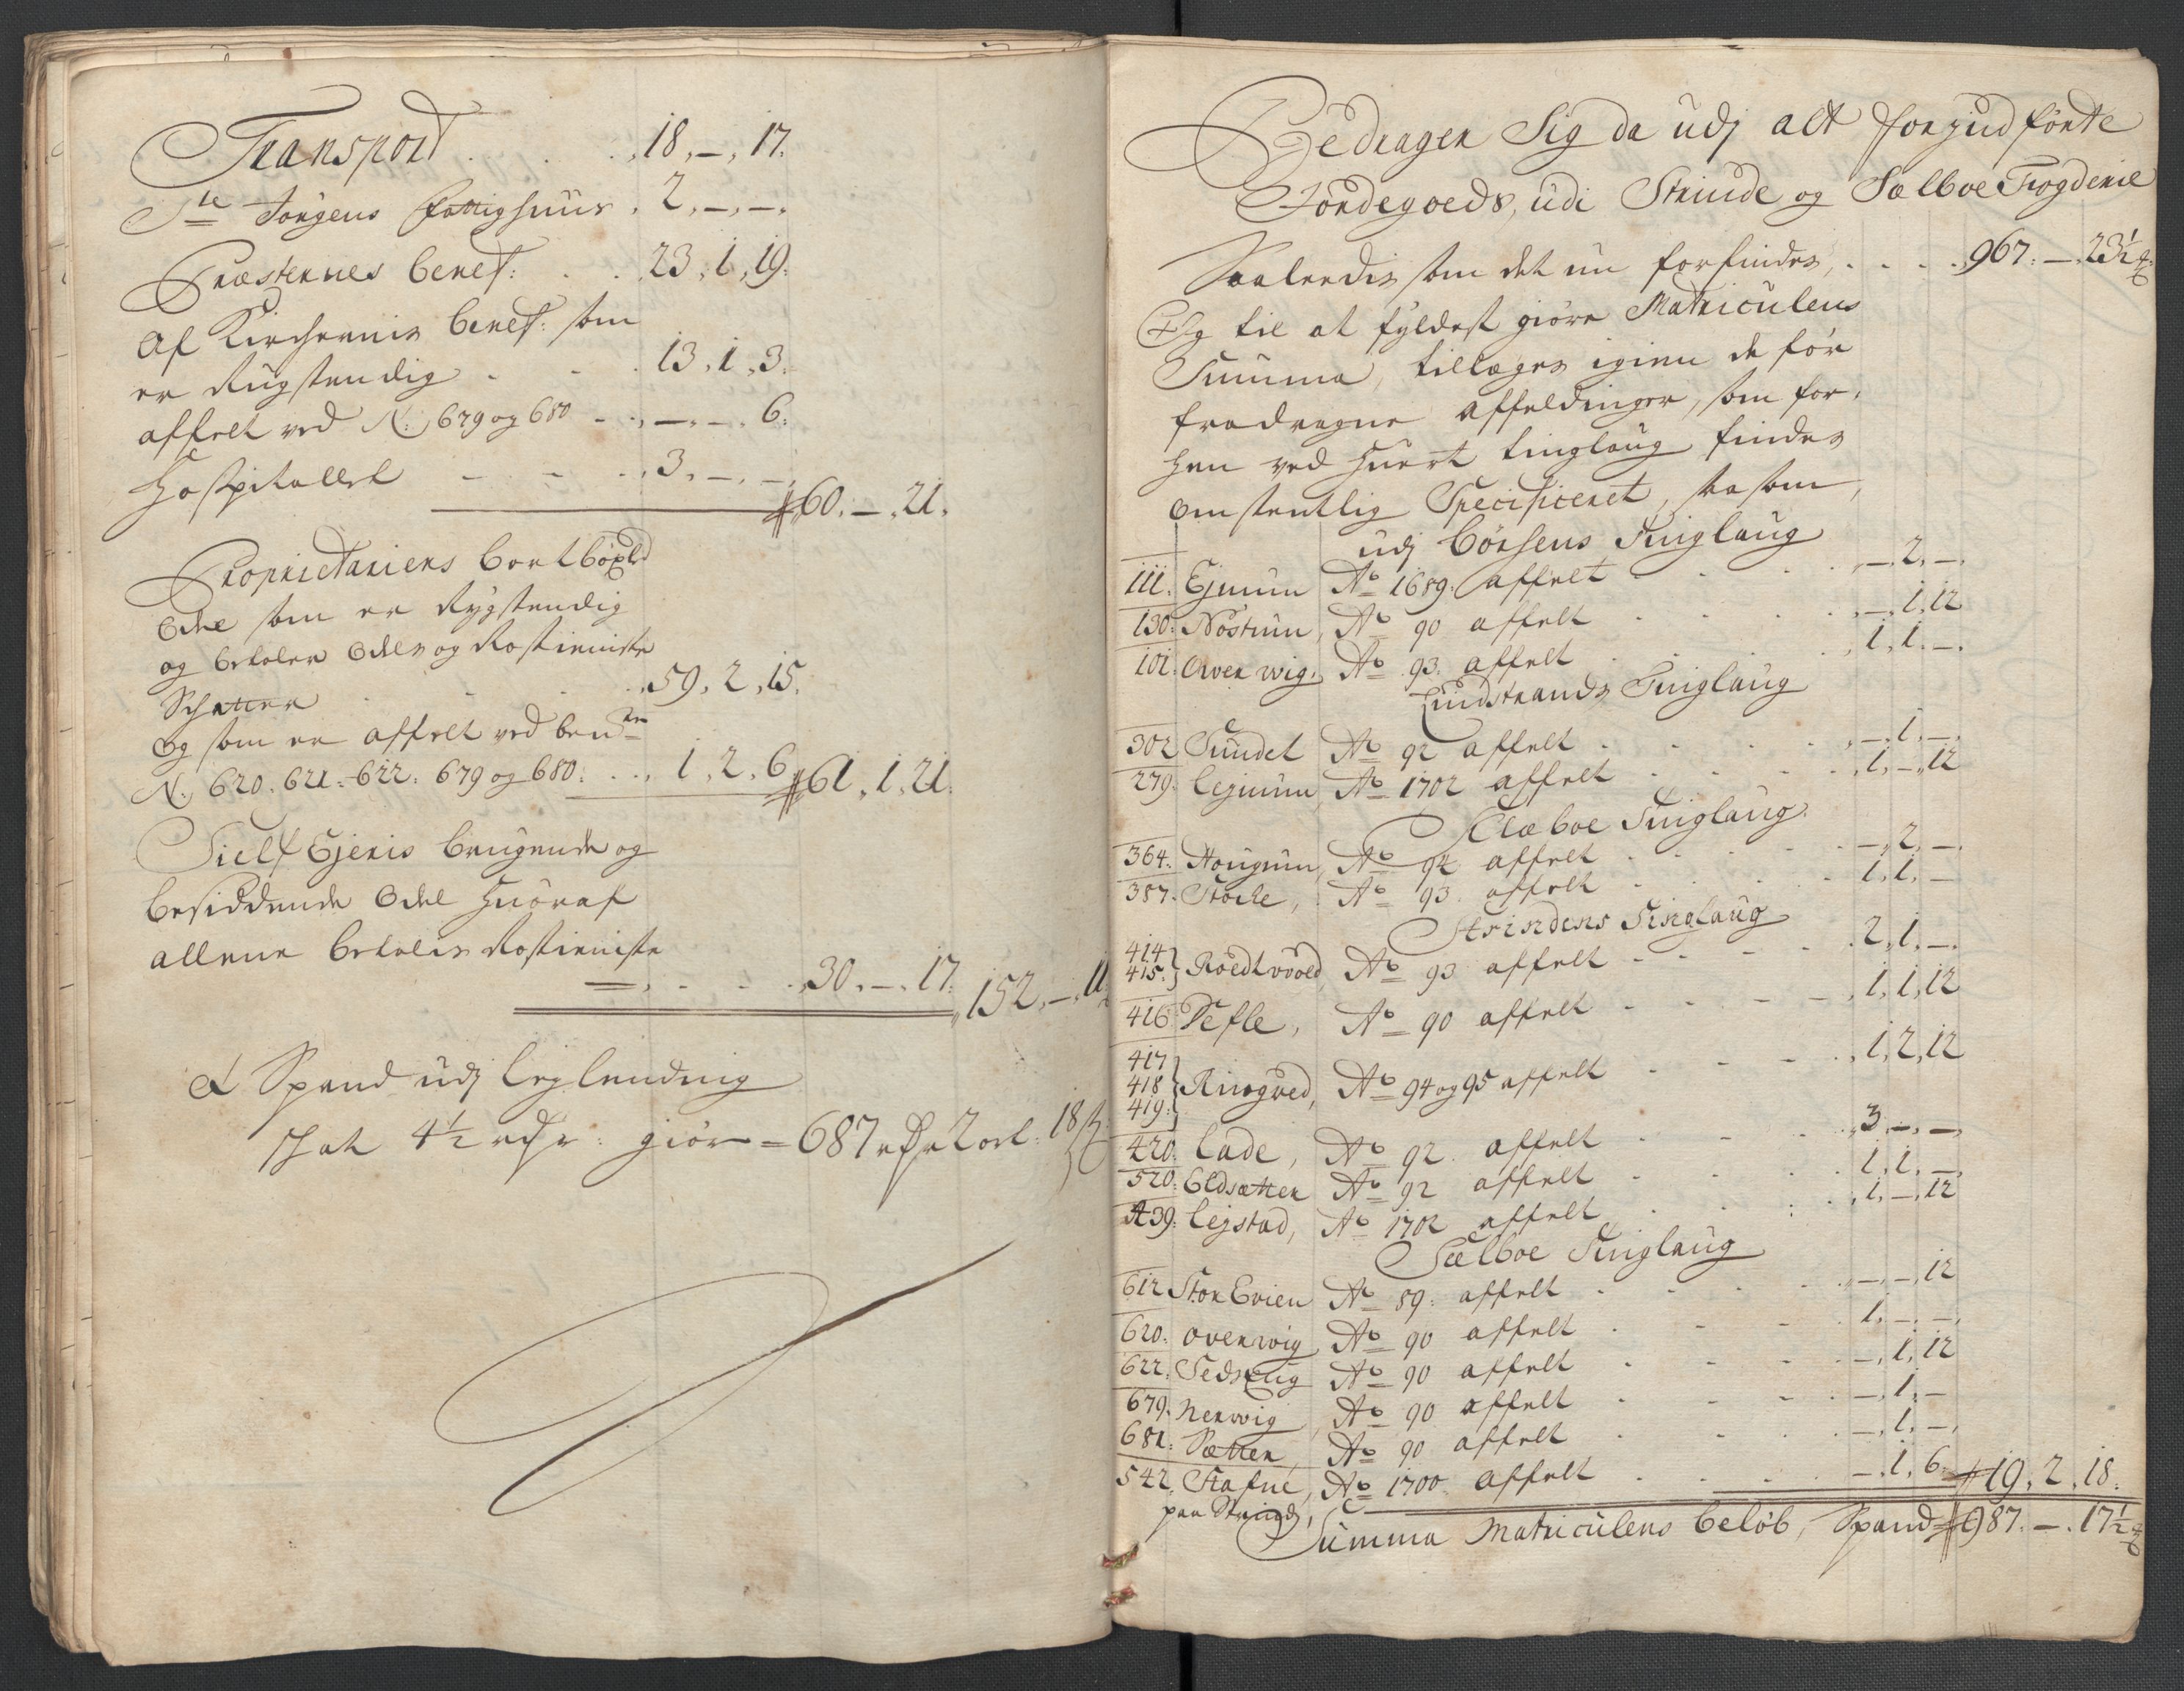 Transport . . . 18, –, 17.
Ste Jørgens fattighuus . 2, –, –.
Præsternes benef: . . 23, 1, 19.
Af Kirchernis benef: som
er Rygstendig . . . 13, 1, 3.
affelt ved N: 679 og 680 . . –, –, 6.
Hospitallet – – – . 3, –, –. 60. –. 21.
Proprietariens bortbøxled
Odel som er Rygstendig
og betaler Odels og Rostieniste
Schatter . . . 59, 2, 15.
Og som er affelt ved bente
N: 620. 621. 622. 679 og 680. . . 1, 2, 6. 61, 1, 21.
Sielf Ejeris brugende og
besiddende Odel huoraf
allene betalis Rostieniste
= . . . 30, –, 17. 152, –, 11
à Spand udj leylending
schat 4½ rdr: giør = 687 rdr 2 ort. 18 s
Bedrager Sig da udj alt forjndførte
Jordegoeds, udi Strinde og Sælboe Fogderie
Saaledis som det nu forfindes, . . . 967. –. 23½
Og til at fyldest giøre Matriculens
Summa, tillæges igien de før
fradragne affeldinger, som for,
hen ved huert tinglaug findes
omstentlig Specificeret, saasom,
udj Børsens Tinglaug
111. Ejnum Ao 1689. affelt . . . –, 2, –.
130. Nostrum, Ao 90 affelt . . . –, 1, 12
101. Overwig, Ao 93. affelt . . . 1, 1, –.
Lundstrands Tinglaug
302 Sundet Ao 92 affelt . . . –, 1, –.
279. Legnum Ao 1702 affelt . . . 1, –, 12
Clæboe Tinglaug
364. Hougum, Ao 92 affelt . . . –, 2, –.
387. Stocke, Ao 93. affelt . . . 1, 1, –
Strindens Tinglaug
414
415. Roedtvoled Ao 93 affelt . . . 2, 1, –.
416 Tesle, Ao 90 affelt . . . 1, 1, 12
417
418 Ringved, Ao 94 og 95 affelt . . . 1, 2, 12
419.
420. Lade, Ao 92. affelt . . . 3, –, –.
520. Eldsætter Ao 92 affelt . . . 1, 1, –.
439. Lejstad, Ao 1702 affelt . . . 1, –, 12
Sælboe Tinglaug
612 Stor Evien Ao 89. affelt . . . –, –, 12
620. overwig Ao 90 affelt . . . 1, –, –.
622. Ao 90 affelt . . . –, 1, 12
679. Nerwig Ao 90 affelt . . . –, 1, –
681. Sætter, Ao 90 affelt . . . –, 1, –.
542. Stafne, Ao 1700 affelt . . . –, 1, 6. 19, 2, 18.
paa Strind,
Summa Matriculens beløb, Spand 987. –. 17½